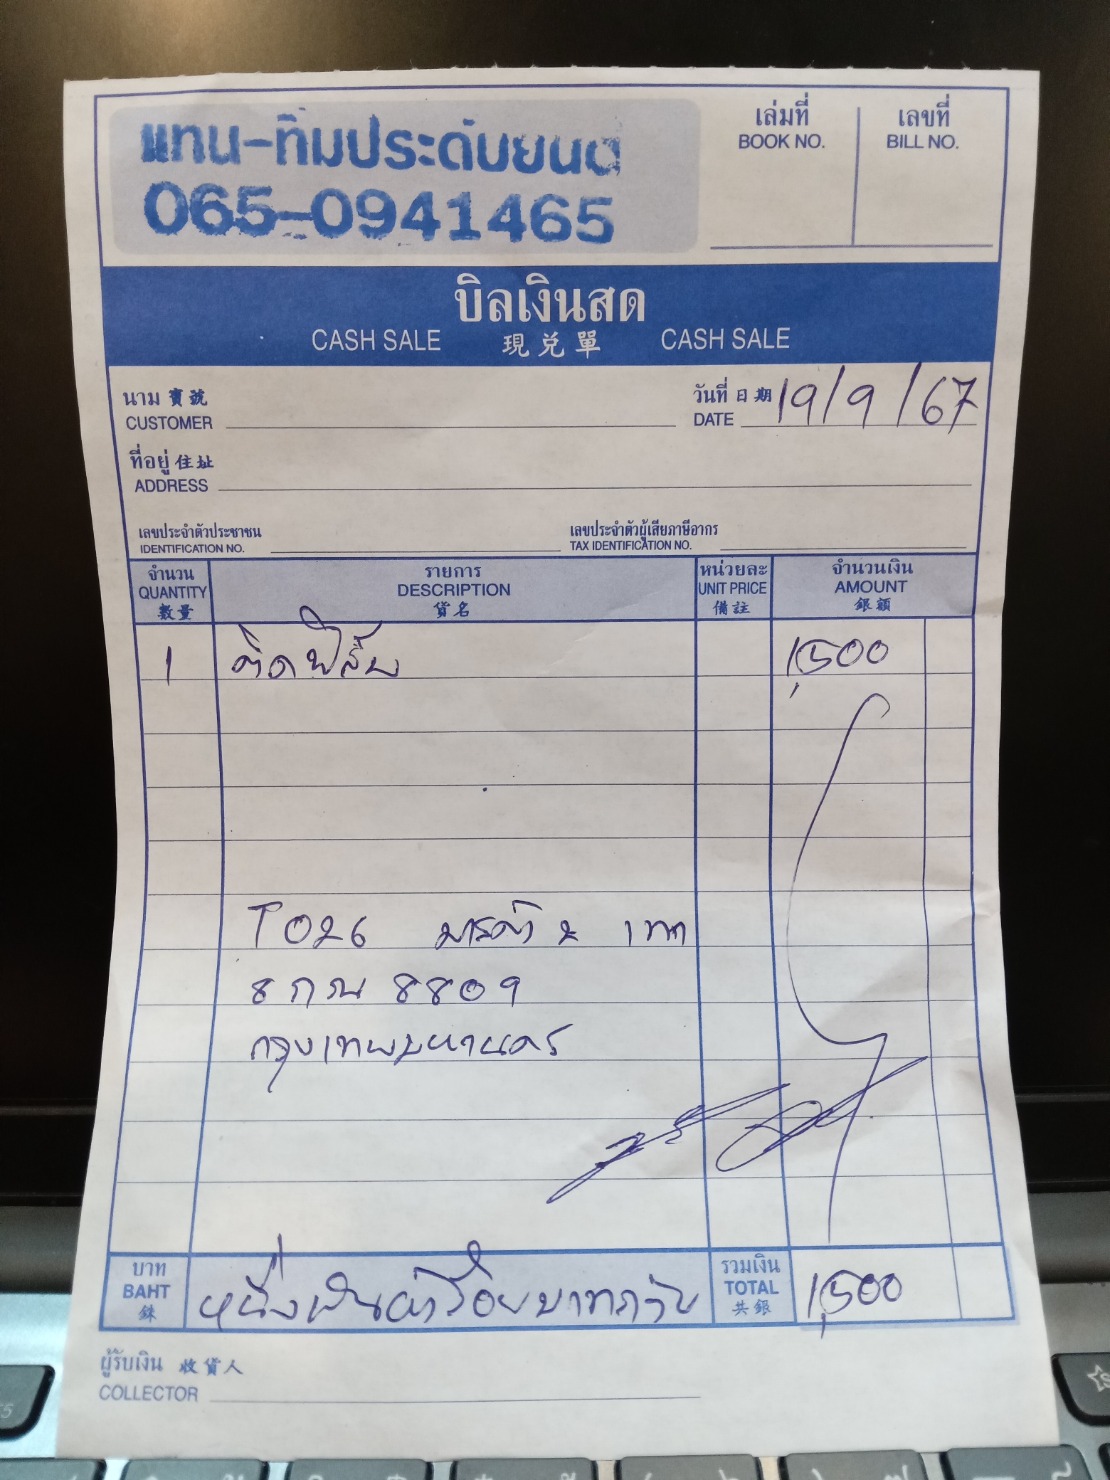 แทน-ทิมประดับยนต์
065-0941465
เล่มที่
BOOK NO.
เลขที่
BILL NO.
บิลเงินสด
CASH SALE 現兌單 CASH SALE
นาม 寶號
CUSTOMER
วันที่ 日期 19/9/67
DATE
ที่อยู่ 住址
ADDRESS
เลขประจำตัวประชาชน
IDENTIFICATION NO.
เลขประจำตัวผู้เสียภาษีอากร
TAX IDENTIFICATION NO.
จำนวน
QUANTITY
數量
รายการ
DESCRIPTION
貨名
หน่วยละ
UNIT PRICE
備註
จำนวนเงิน
AMOUNT
銀額
1 ติดฟิล์ม 1,500
T026 มาสด้า 2 เทา
8 กณ 8809
กรุงเทพมหานคร
บาท
BAHT
銖
หนึ่งพันห้าร้อยบาทถ้วน
รวมเงิน
TOTAL
共銀
1,500
ผู้รับเงิน 收貨人
COLLECTOR